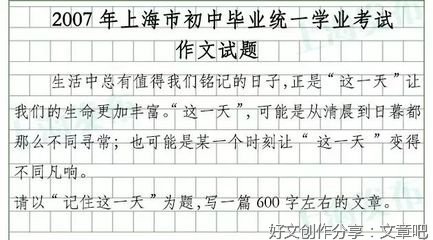 2007年上海市初中毕业统一学业考试
作文试题
生活中总有值得我们铭记的日子,正是“这一天”让
我们的生命更加丰富。“这一天”,可能是从清晨到日暮都
那么不同寻常;也可能是某一个时刻让“这一天”变得
不同凡响。
请以“记住这一天”为题,写一篇600字左右的文章。
好文创作分享:文章吧